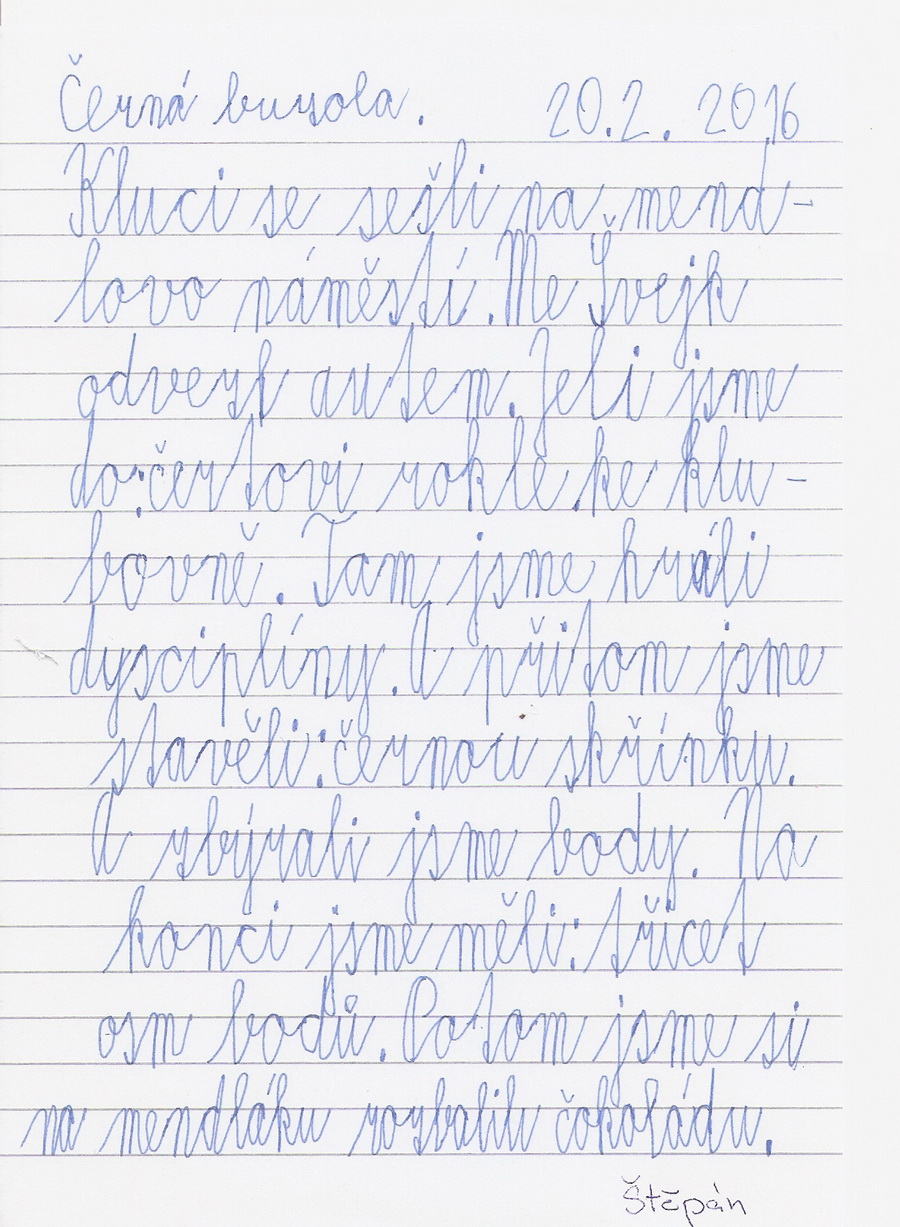 Černá buzola. 20.2. 2016
Kluci se sešli na mend-
lovo náměstí. Me Švejk
odvezl autem. Jeli jsme
do:čertovi rokle ke klu-
bovně. Tam jsme hráli
dysciplíny. A přitom jsme
stavěli:černou skřínku.
A zbýrali jsme body. Na
konci jsme měli: třicet
osm bodů. Potom jsme si
na mendláku rozbalili čokoládu.
Štěpán